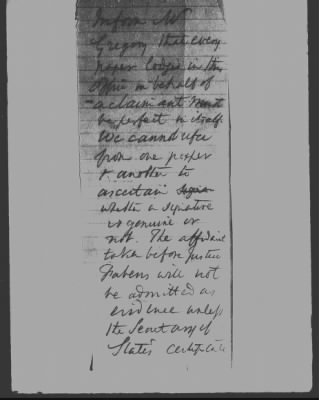 Inform Mr
Gregory that every
paper lodged in this
office in behalf of
a claimant must
be perfect in itself.
We cannot refer
from one paper
to another to
ascertain
whether a signature
is genuine or
not. The affidavit
taken before Justice
Fabens will not
be admitted as
evidence unless
the Secretary of
State's certificate